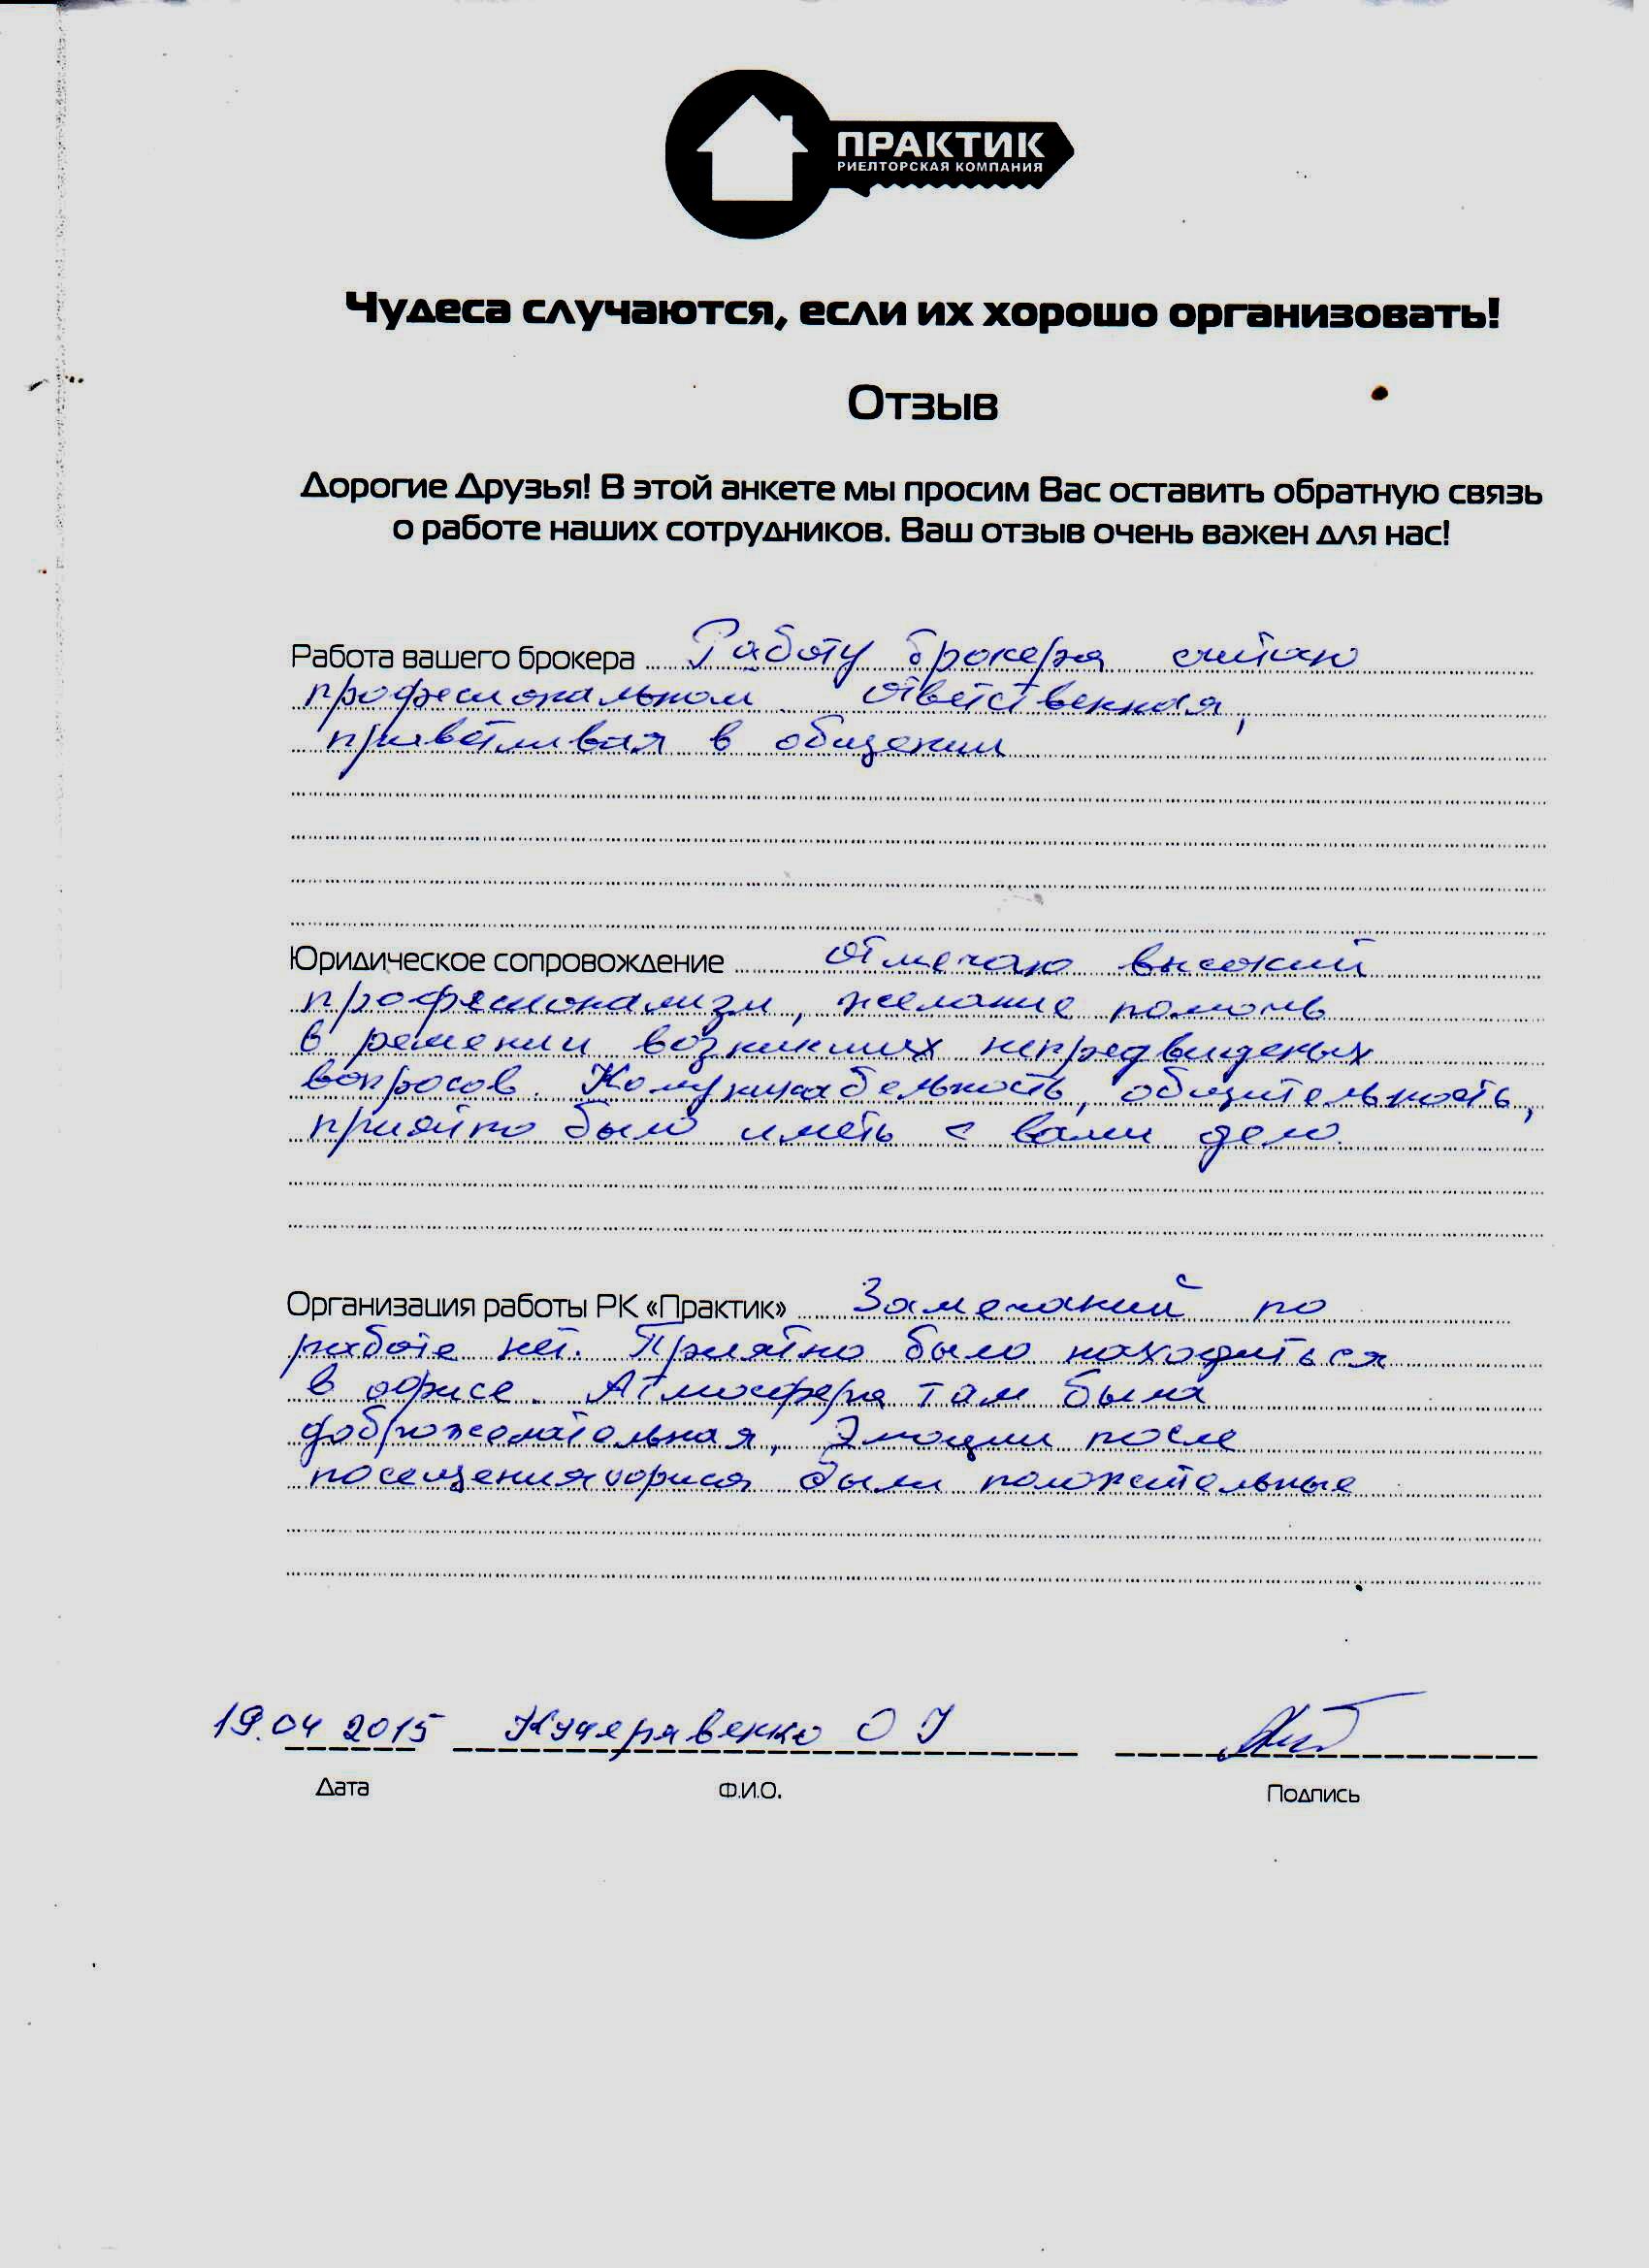 ПРАКТИК
РИЕЛТОРСКАЯ КОМПАНИЯ
Чудеса случаются, если их хорошо организовать!
Отзыв
Дорогие Друзья! В этой анкете мы просим Вас оставить обратную связь
о работе наших сотрудников. Ваш отзыв очень важен для нас!
Работа вашего брокера Работу брокера считаю
професиональной. ответственная,
приветливая в общении
Юридическое сопровождение отмечаю высокий
професионализм, желание помочь
в решении возникших непредвиденых
вопросов. Комуникабельность, общительность,
приятно было иметь с вами дело.
Организация работы РК «Практик» Замечаний по
работе нет. Приятно было находиться
в офисе. Атмосфера там была
доброжелательная, Эмоции после
посещения офиса были положительные
19.04 2015 Кучерявенко О И
Дата Ф.И.О. Подпись